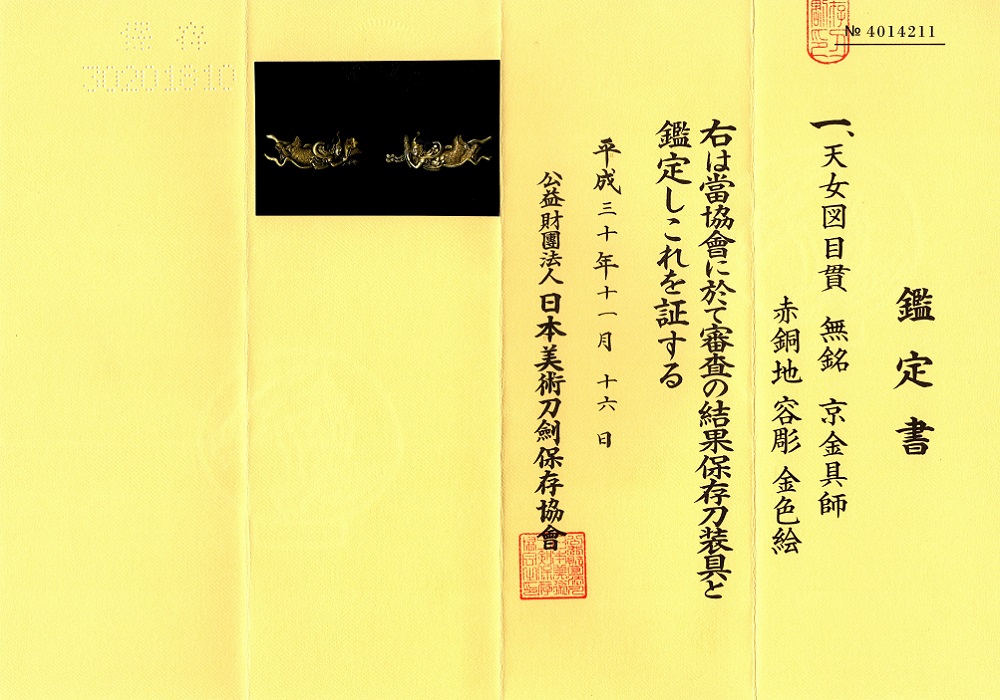 № 4014211
鑑定書
一、天女図目貫 無銘 京金具師
赤銅地 容彫 金色絵
右は當協會に於て審査の結果保存刀装具と
鑑定しこれを証する
平成三十年十一月 十六日
公益財團法人 日本美術刀劍保存協會
保存
30201810